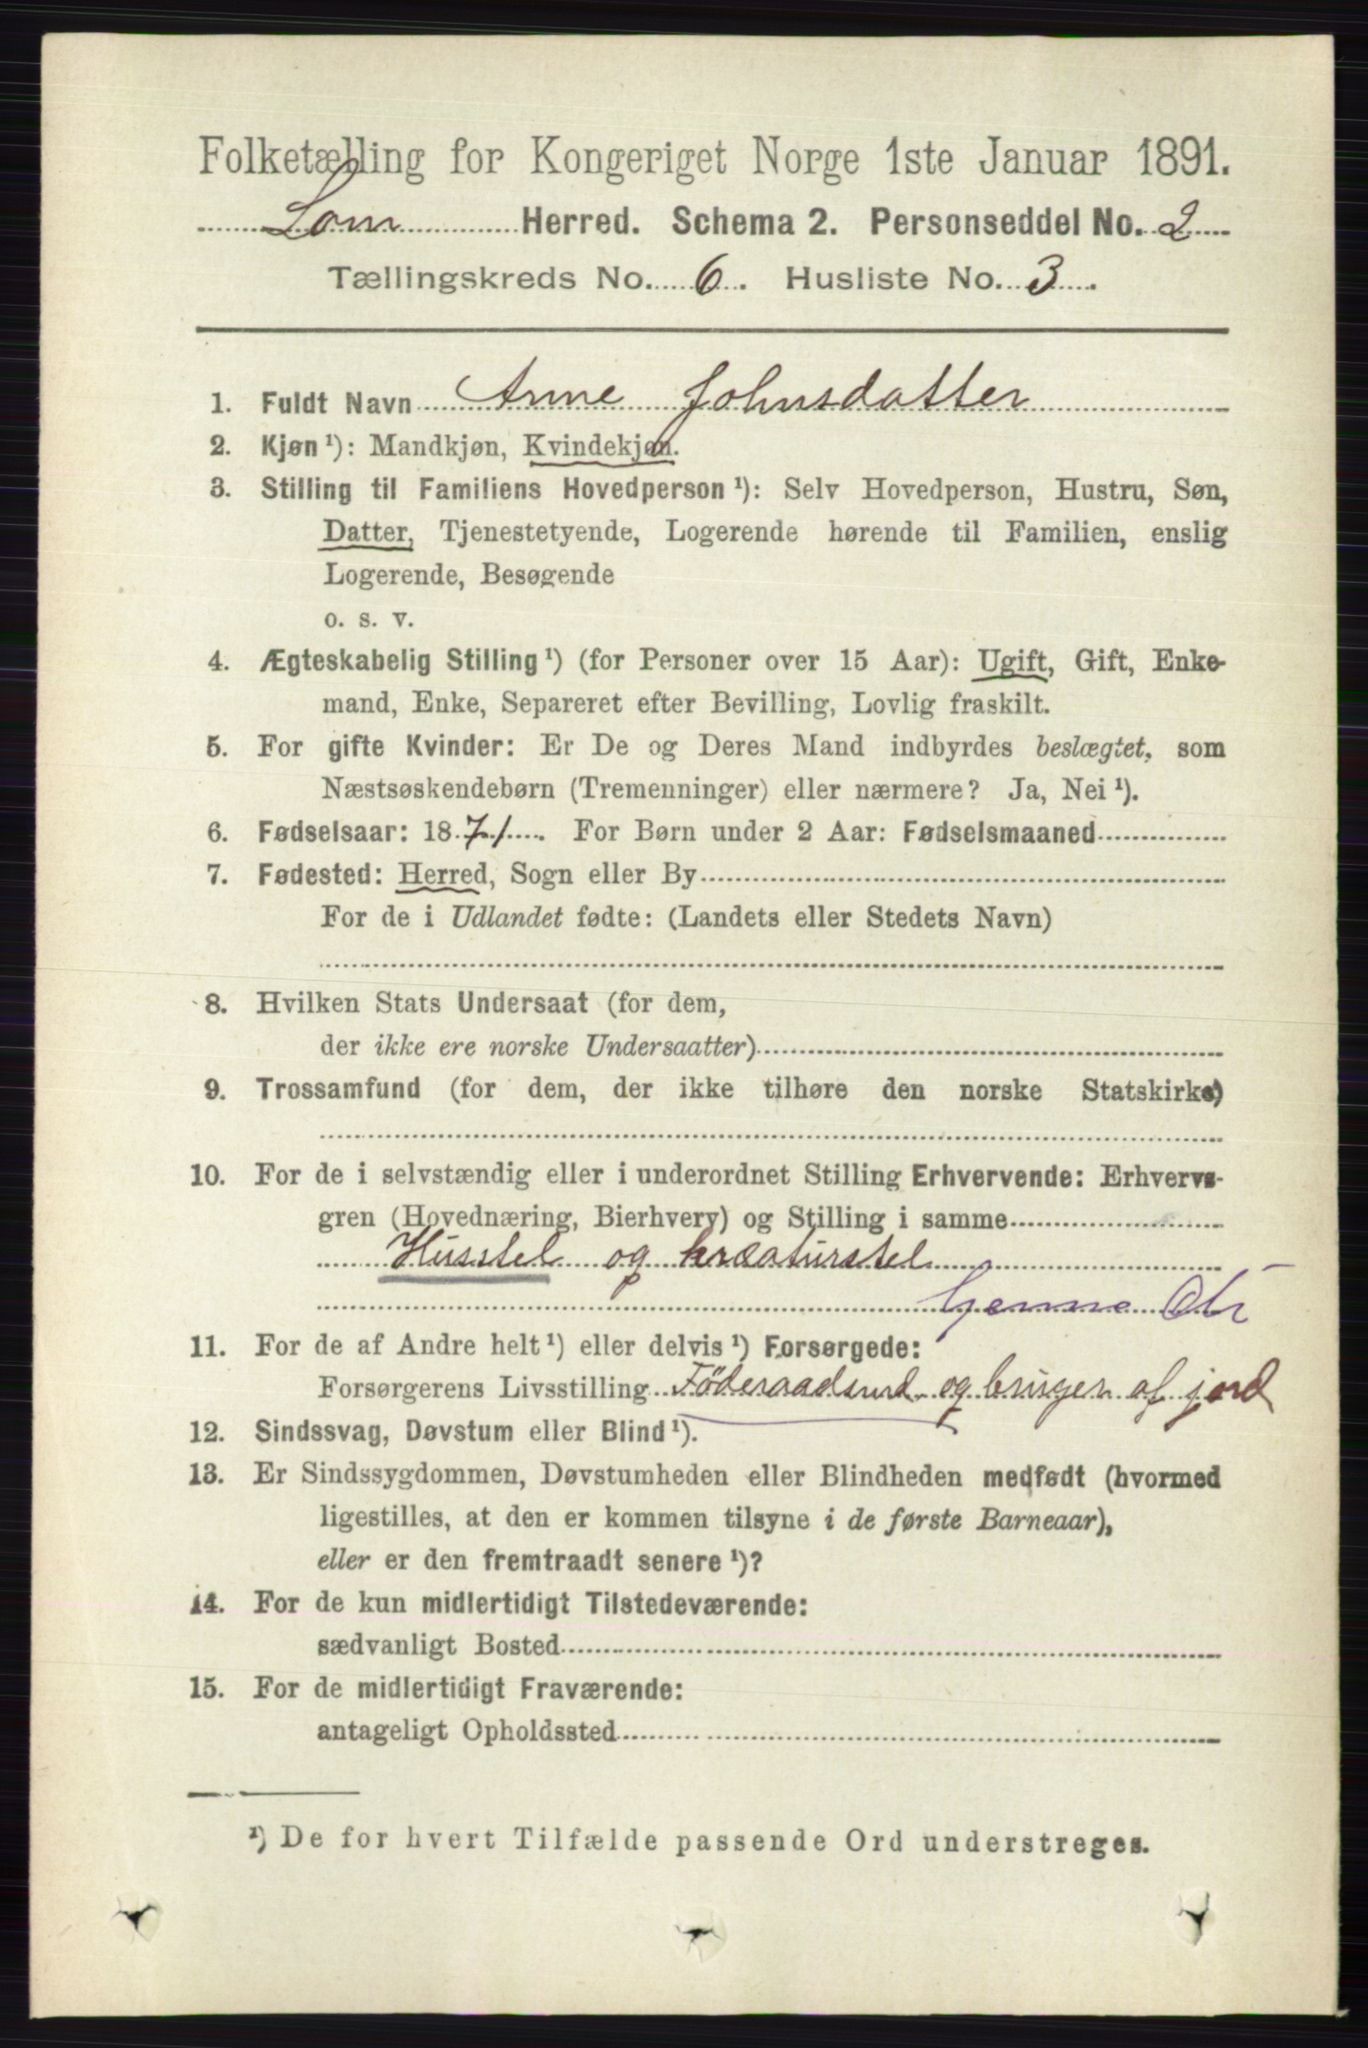 Folketælling for Kongeriget Norge 1ste Januar 1891.
Lom Herred. Schema 2. Personseddel No. 2
Tællingskreds No. 6. Husliste No. 3.
1. Fuldt Navn Anne Johnsdatter
2. Kjøn¹): Mandkjøn, Kvindekjøn.
3. Stilling til Familiens Hovedperson¹): Selv Hovedperson, Hustru, Søn,
Datter, Tjenestetyende, Logerende hørende til Familien, enslig
Logerende, Besøgende
o. s. v.
4. Ægteskabelig Stilling¹) (for Personer over 15 Aar): Ugift, Gift, Enke-
mand, Enke, Separeret efter Bevilling, Lovlig fraskilt.
5. For gifte Kvinder: Er De og Deres Mand indbyrdes beslægtet, som
Næstsøskendebørn (Tremenninger) eller nærmere? Ja, Nei¹).
6. Fødselsaar: 1871. For Børn under 2 Aar: Fødselsmaaned
7. Fødested: Herred, Sogn eller By
For de i Udlandet fødte: (Landets eller Stedets Navn)
8. Hvilken Stats Undersaat (for dem,
der ikke ere norske Undersaatter)
9. Trossamfund (for dem, der ikke tilhøre den norske Statskirke)
10. For de i selvstændig eller i underordnet Stilling Erhvervende: Erhvervs-
gren (Hovednæring, Bierhverv) og Stilling i samme
Husstel og kræaturstel
hjemme
11. For de af Andre helt¹) eller delvis¹) Forsørgede:
Forsørgerens Livsstilling Föderaadsmd og bruger af jord
12. Sindssvag, Døvstum eller Blind¹).
13. Er Sindssygdommen, Døvstumheden eller Blindheden medfødt (hvormed
ligestilles, at den er kommen tilsyne i de første Barneaar),
eller er den fremtraadt senere¹)?
14. For de kun midlertidigt Tilstedeværende:
sædvanligt Bosted
15. For de midlertidigt Fraværende:
antageligt Opholdssted
¹) De for hvert Tilfælde passende Ord understreges.